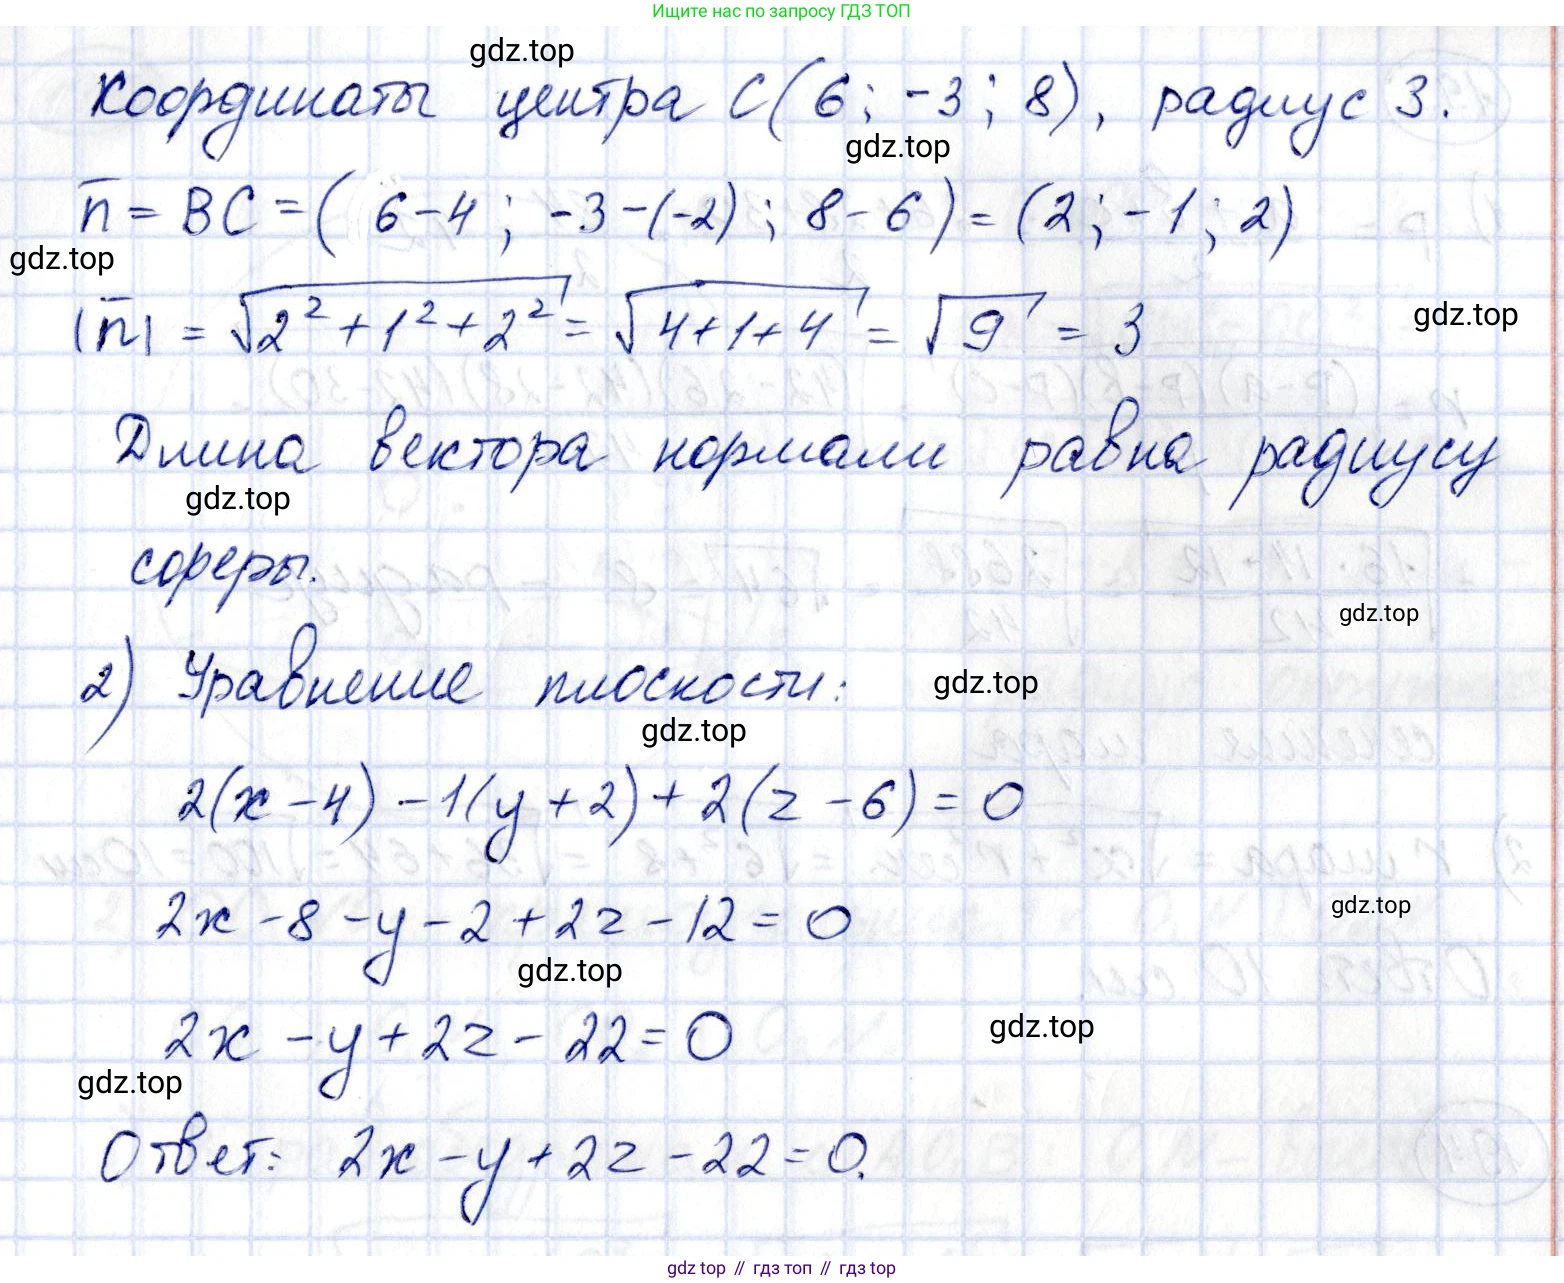 Ищите нас по запросу ГДЗ ТОП
gdz.top
Координаты центра C(6; -3; 8), радиус 3.
gdz.top
n̅ = BC = (6-4; -3-(-2); 8-6) = (2; -1; 2)
gdz.top
|n̅| = √(2² + 1² + 2²) = √(4+1+4) = √9 = 3
gdz.top
Длина вектора нормали равна радиусу
gdz.top
сферы.
gdz.top
2) Уравнение плоскости:
gdz.top
gdz.top
2(x-4) - 1(y+2) + 2(z-6) = 0
2x - 8 - y - 2 + 2z - 12 = 0
gdz.top
gdz.top
2x - y + 2z - 22 = 0
gdz.top
gdz.top
Ответ: 2x - y + 2z - 22 = 0.
gdz top // гдз топ // гдз top